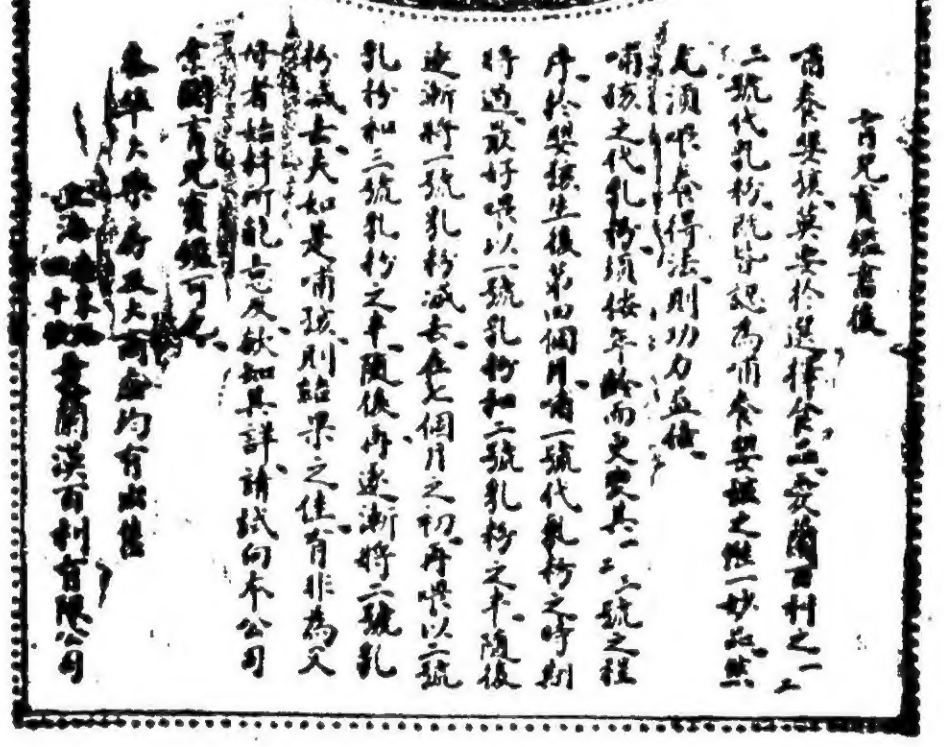 育兒寶鑑書後
哺養嬰孩莫要於選擇食品愛蘭百利之一二
三號代乳粉既皆認為哺養嬰孩之惟一妙品然
尤須喂養得法則功力益偉
哺孩之代乳粉須按年齡而更變其一二三號之程
序於嬰孩生後第四個月哺一號代乳粉之時期
將過最好喂以一號乳粉和二號乳粉之半隨後
逐漸將一號乳粉減去在七個月之初再喂以二號
乳粉和三號乳粉之半隨後再逐漸將二號乳
粉減去夫如是哺孩則結果之佳有非為父
母者始料所能忘及欲知其詳請試向本公司
索閱育兒寶鑑可
各埠大藥房及大商店均有出售
上海 四十號愛蘭漢百利有限公司